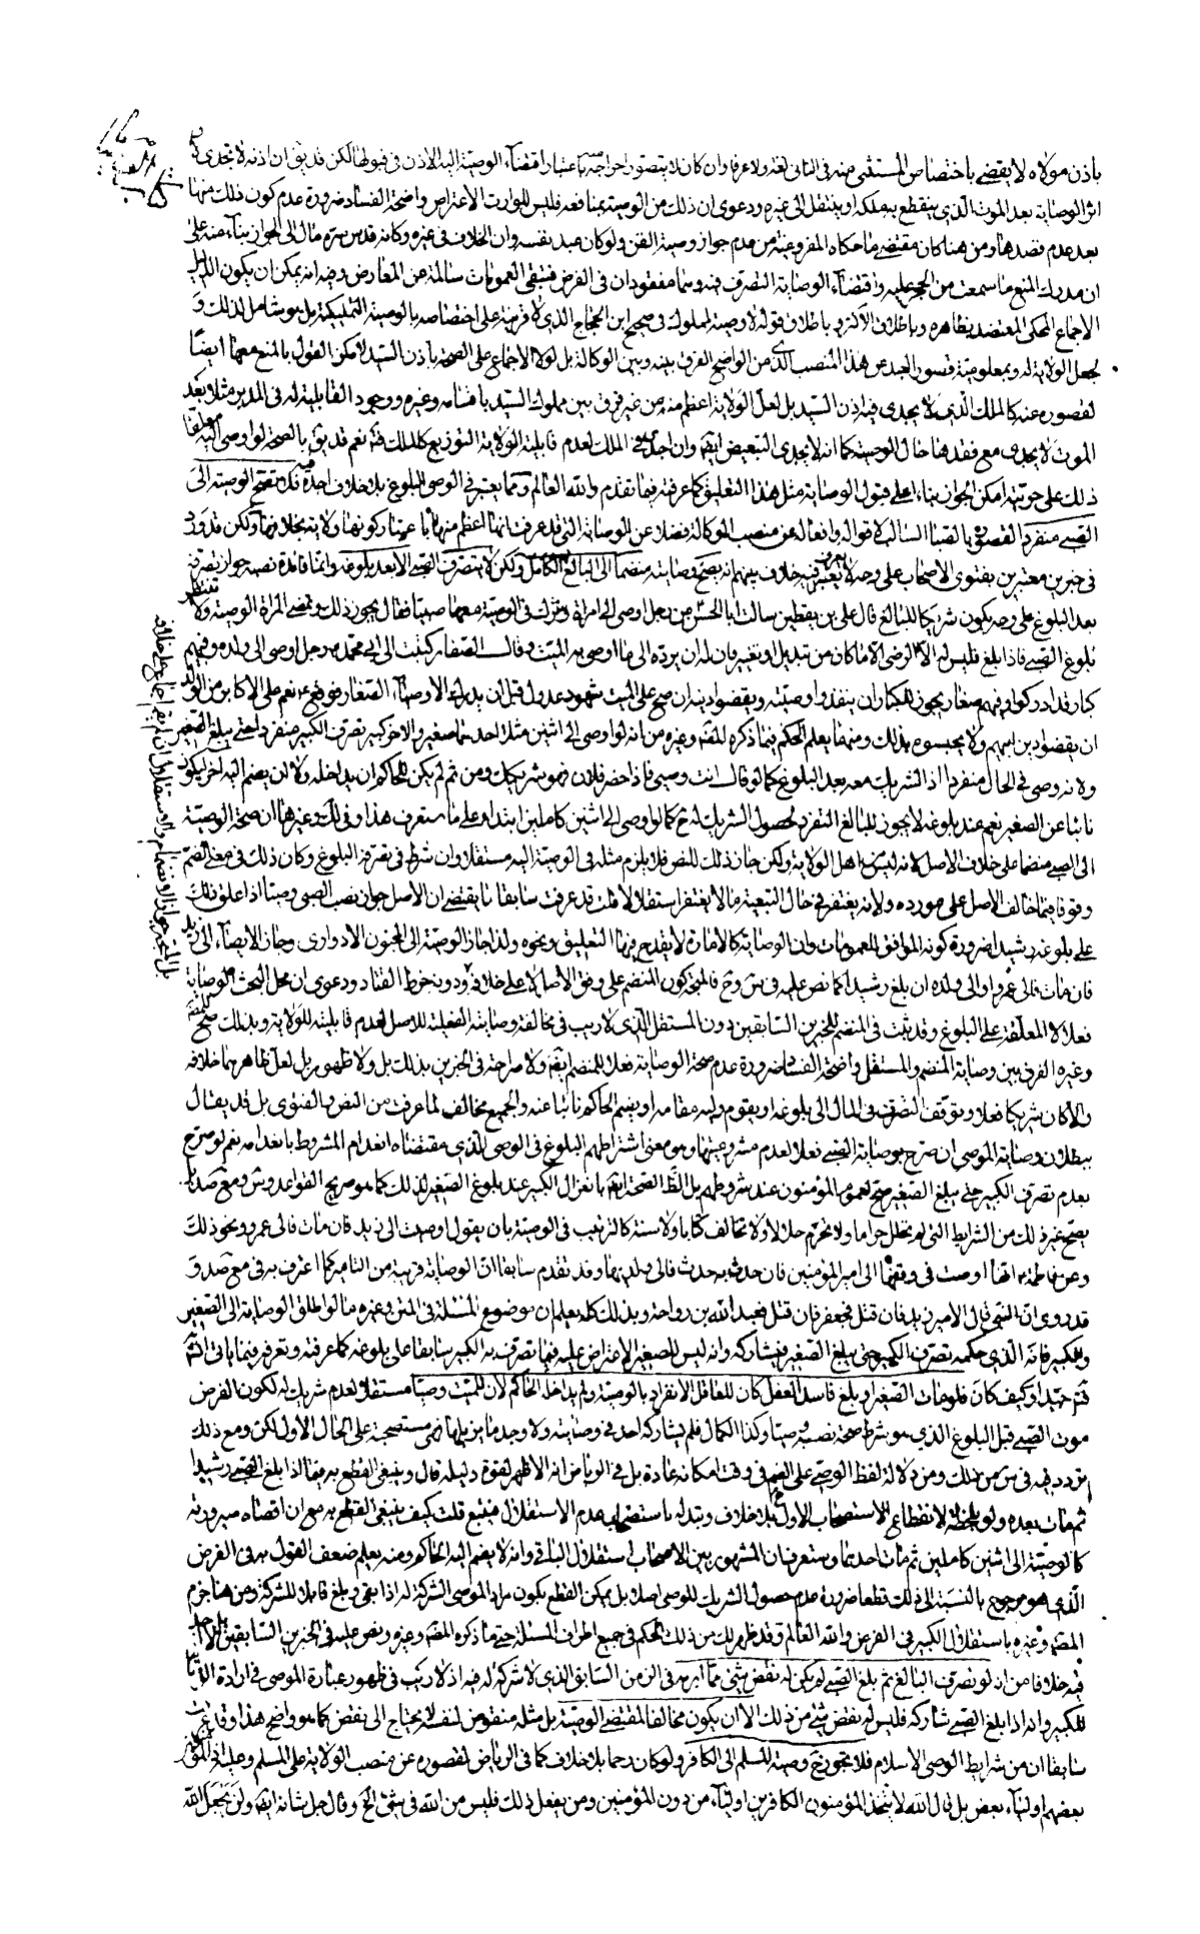 بأذن مولاه لا يقضى باختصاص المستثنى منه فى الثانى لغة ولا عرفا وان كان لا يتصور احراجه باعتبار اقتضاء الوصية اليه الاذن فى قبولها لكن قد يق ان اذنه لا تجدى
اثر الوصاية بعد الموت الذى ينقطع به ملكه او ينتقل الى غيره ودعوى ان ذلك من الوصية بمنافعه فليس للوارث الاعتراض واضحة الفساد ضرورة عدم كون ذلك منها
بعد عدم قصدها ومن هنا كان مقتضى ما حكاه المفروغية من عدم جواز وصية القن ولو كان عبد نفسه وان الخلاف فى غيره وكانه قدس سره مال الى الجواز بناء منه على
ان مدرك المنع ما سمعت من الحجر عليه واقتضاء الوصاية التصرف فيه وهما مفقودان فى الفرض فتبقى العمومات سالمة عن المعارض وفيه انه يمكن ان يكون الدليل
الاجماع المحكى المعتضد بظاهره وباطلاق الاكثر وباطلاق قوله لا وصية لمملوك فى صحيح ابن الحجاج الذى لا قرينة على اختصاصه بالوصية التمليكية بل هو شامل لذلك و
لجعل الولاية له وبمعلومية قصور العبد عن هذا المنصب الذى من الواضح الفرق بينه وبين الوكالة بل لولا الاجماع على الصحة باذن السيد لامكن القول بالمنع معها ايضا
لقصوره عنه كالملك الذى لا يجدى فيه اذن السيد بل لعل الولاية اعظم منه من غير فرق بين مملوك السيد باقسامه وغيره ووجود القابلية له فى المدبر مثلا بعد
الموت لا يجدى مع فقدها حال الوصية كما انه لا يجدى التبعيض ايضا وان اجدى فى الملك لعدم قابلية الولاية التوزيع كالملك فت نعم قد يق بالصحة لو اوصى اليه معلقا
ذلك على حريته امكن الجواز بناء على قبول الوصاية مثل هذا التعليق كما عرفته فيما تقدم والله العالم ومما يعتبر فى الوصى البلوغ بلا خلاف اجده فيه فلا تصح الوصية الى
الصبى منفردا لقصوره بالصبا السالب لاقواله وافعاله عن منصب الوكالة فضلا عن الوصاية التى قد عرفت انها اعظم منها باعتبار كونها ولاية بخلافها ولكن قد ورد
فى خبرين معتبرين بفتوى الاصحاب على وجه لا يعرف فيه خلاف بينهم انه يصح وصايته منضما الى البالغ الكامل ولكن لا يتصرف الصبى الا بعد بلوغه وانما فائدة نصبه جواز تصرفه
بعد البلوغ على وجه يكون شريكا للبالغ قال على بن يقطين سالت ابا الحسن عن رجل اوصى الى امراة وشرك فى الوصية معها صبيا فقال يجوز ذلك وتمضى المراة الوصية ولا تنتظر
بلوغ الصبى فاذا بلغ فليس له الا يرضى الا ما كان من تبديل او تغيير فان له ان يرده الى ما اوصى به الميت وقال الصفار كتبت الى ابى محمد رجل اوصى الى ولده وفيهم
كبار قد ادركوا وفيهم صغار يجوز للكبار ان ينفذوا وصيته ويقضوا دينه ان صح على الميت شهود عدول قبل ان يدرك الاوصياء الصغار فوقع ع نعم على الاكابر من الولد
ان يقضوا دين ابيهم ولا يحبسوه بذلك ومنهما يعلم الحكم فيما ذكره المص وغيره من انه لو اوصى الى اثنين مثلا احدهما صغير والاخر كبير تصرف الكبير منفردا حتى يبلغ الصغير
ولانه وصى فى الحال منفردا اذ الشريك معه بعد البلوغ كما لو قال انت وصيى فاذا حضر فلان فهو شريكك ومن ثم لم يكن للحاكم ان يداخله ولا ان يضم اليه اخر ليكون
نائبا عن الصغير نعم عند بلوغه لا يجوز للبالغ التفرد لحصول الشريك له ح كما لو اوصى الى اثنين كاملين ابتداء على ما ستعرف هذا وفى لك وغيرها ان صحة الوصية
الى الصبى منضما على خلاف الاصل لانه ليس من اهل الولاية ولكن جاز ذلك للنص فلا يلزم مثله فى الوصية اليه مستقلا وان شرط فى تصرفه البلوغ وكان ذلك فى معنى الضم
وقوفا فيما خالف الاصل على مورده ولانه يغتفر فى حال التبعية ما لا يغتفر استقلالا قلت قد عرفت سابقا ما يقتضى ان الاصل جواز نصب الصبى وصيا اذا علق ذلك
على بلوغه رشيدا ضرورة كونه الموافق للعمومات وان الوصاية كالامارة لا يقدح فيها التعليق ونحوه ولذا جاز الوصية الى المجنون الادوارى وجاز الايصاء الى زيد
فان مات فالى عمرو او الى ولده ان بلغ رشيدا كما نص عليه فى س وح فالمتجه كون المنضم على وفق الاصل لا على خلافه ودونه خرط القتاد ودعوى ان محل البحث الوصاية
فعلا لا المعلقة على البلوغ وقد ثبت فى المنضم للخبرين السابقين دون المستقل الذى لا ريب فى مخالفة وصايته الفعلية للاصل لعدم قابليته للولاية وبذلك صح الفرق
وغيره الفرق بين وصاية المنضم والمستقل واضحة الفساد ضرورة عدم صحة الوصاية فعلا للمنضم ايضا ولا صراحة فى الخبرين بذلك بل ولا ظهور بل لعل ظاهرهما خلافه
والا كان شريكا فعلا وتوقف التصرف فى المال الى بلوغه او يقوم وليه مقامه او يضم الحاكم نائبا عنه والجميع مخالف لما عرفت من النص والفتوى بل قد يقال
ببطلان وصاية الموصى ان صرح بوصاية الصبى فعلا لعدم مشروعيتها وهو معنى اشتراطهم البلوغ فى الوصى الذى مقتضاه انعدام المشروط بانعدامه نعم لو صرح
بعدم تصرف الكبير حتى يبلغ الصغير صح لعموم المؤمنون عند شروطهم بل الظ الصحة ايضا بانعزال الكبير عند بلوغ الصغير لذلك كما هو صريح القواعد وس ومع صد بل
يصح غير ذلك من الشرايط التى لم تحلل حراما ولا تحرم حلالا ولا تخالف كتابا ولا سنة كالترتيب فى الوصية بان يقول اوصيت الى زيد فان مات فالى عمرو ونحو ذلك
وعن فاطمة ع انها اوصت فى وقفها الى امير المؤمنين فان حدث به حدث فالى ولديها وقد تقدم سابقا ان الوصاية قريبة من التامير كما اعترف به فى مع صد و
قد روى ان النبى قال الامير زيد فان قتل فجعفر فان قتل فعبد الله بن رواحة وبذلك كله يعلم ان موضوع المسئلة فى المتن وغيره ما لو اطلق الوصاية الى الصغير
والكبير فانه الذى حكمه تصرف الكبير حتى يبلغ الصغير فيشاركه وانه ليس للصغير الاعتراض عليه فيما تصرف به الكبير سابقا على بلوغه كما عرفته وتعرفه فيما ياتى انش
فت جيدا وكيف كان فلو مات الصغير او بلغ فاسد العقل كان للعاقل الانفراد بالوصية ولم يداخله الحاكم لان للميت وصيا مستقلا لعدم شريك له لكون الفرض
موت الصبى قبل البلوغ الذى هو شرط صحة نصبه وصيا وكذا الكمال فلم يشاركه احد فى وصايته ولا وجد ما يزيلها فهى مستصحبة على الحال الاول لكن ومع ذلك
تردد فيه فى س من ذلك ومن دلالة لفظ الوصى على الضم فى وقت امكانه عادة بل فى الرياض انه الاظهر لقوة دليله قال وينبغى القطع به فيما اذا بلغ الصبى رشيدا
ثم مات بعده ولو بلحظة لانقطاع الاستصحاب الاول ح بلا خلاف وتبدله باستصحاب عدم الاستقلال فيتبع قلت كيف ينبغى القطع به مع ان اقصاه صيرورته
كالوصية الى اثنين كاملين ثم مات احدهما وستعرف ان المشهور بين الاصحاب استقلال الباقى وانه لا يضم اليه الحاكم ومنه يعلم ضعف القول به فى الفرض
الذى هو مرجوح بالنسبة الى ذلك قطعا ضرورة عدم حصول الشريك للوصى اصلا بل يمكن القطع بكون مراد الموصى الشركة له اذا بقى وبلغ قابلا للشركة ومن هنا جزم
المص وغيره باستقلال الكبير فى الفرض والله العالم وقد ظهر لك من ذلك الحكم فى جميع اطراف المسئلة حتى ما ذكره المص وغيره ونص عليه فى الخبرين السابقين بل لا اجد
فيه خلافا من انه لو تصرف البالغ ثم بلغ الصبى لم يكن له نقض شىء مما ابرمه فى الزمن السابق الذى لا شركة له فيه اذ لا ريب فى ظهور عبارة الموصى فى ارادة
للكبير وانه اذا بلغ الصبى شاركه فليس له نقض شىء من ذلك الا ان يكون مخالفا لمقتضى الوصية بل مثله منقوض لنفسه لا يحتاج الى نقض كما هو واضح هذا وقد عرفت
سابقا ان من شرايط الوصى الاسلام فلا تجوز ح وصية المسلم الى الكافر ولو كان رحما بلا خلاف كما فى الرياض لقصوره عن منصب الولاية على المسلم وغيله اذ المؤمنون
بعضهم اولياء بعض بل قال الله لا يتخذ المؤمنون الكافرين اولياء من دون المؤمنين ومن يفعل ذلك فليس من الله فى شىء الخ وقال جل شانه ايضا ولن يجعل الله